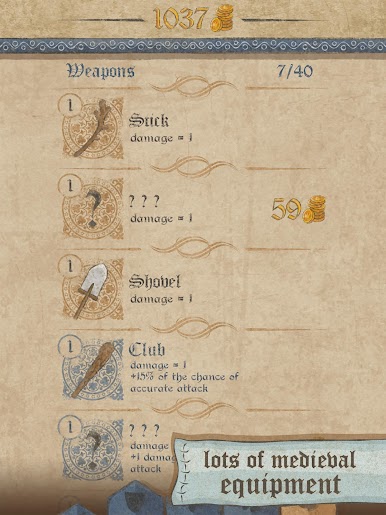 1037
Weapons 7/40
1
Stick
damage = 1
1
?
? ? ?
damage = 1
59
1
Shovel
damage = 1
1
Club
damage = 1
+15% of the chance of
accurate attack
1
?
? ? ?
damage
+1 dama
attack
lots of medieval
equipment